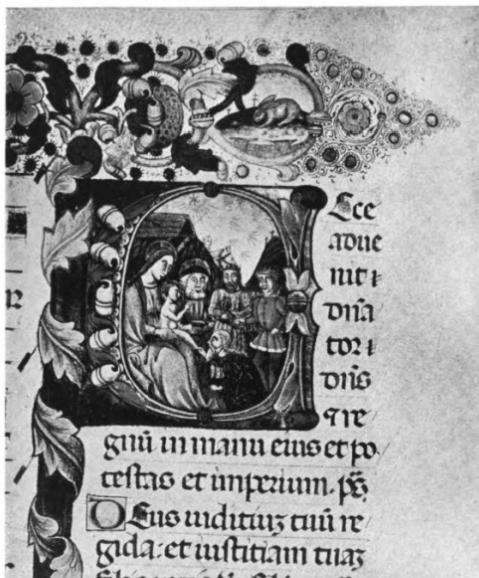 Ecce
adue
nit ⁊
dn̄a
tor ⁊
dn̄s
⁊ re
gnū in manu eius et po
testas et imperium. p̄s
Deus iuditiuz tuū re
gi da: et iustitiam tuaz